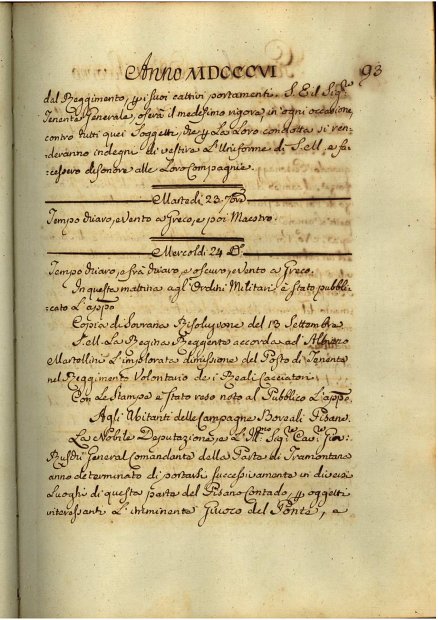 Anno MDCCCVI
93
dal Reggimento, p i suoi cattivi portamenti. S. E. il Sigr.
Tenente Generale, userà il medesimo rigore, in ogni occasione,
contro tutti quei Soggetti, che p La Loro condotta si ren-
deranno indegni di vestire L'Uniforme di S. M., e fa-
cessero disonore alle Loro Compagnie.
Martedì 23. 7bre
Tempo chiaro, e Vento a Greco, e poi Maestro.
Mercoldì 24. Do.
Tempo chiaro, e frà chiaro, e oscuro, e Vento a Greco.
In questa mattina agl'Ordini Militari è stato pubbli-
cato L'appo.
Copia di Sovrana Risoluzione del 13 Settembre
S. M. La Regina Reggente accorda ad
Martellini L'implorata dimissione del Posto di Tenente
nel Reggimento Volontario de i Reali Cacciatori.
Con Le Stampe è stato reso noto al Pubblico L'appo.
Agli Abitanti delle Campagne Boreali Pisane.
La Nobile Deputazione, e L'Illmo. Sigr. Cavr. Giov:
Ruschi General Comandante della Parte di Tramontana
anno determinato di portarsi successivamente in diversi
Luoghi di questa parte del Pisano Contado, p oggetti
interessanti L'imminente Giuoco del Ponte, a